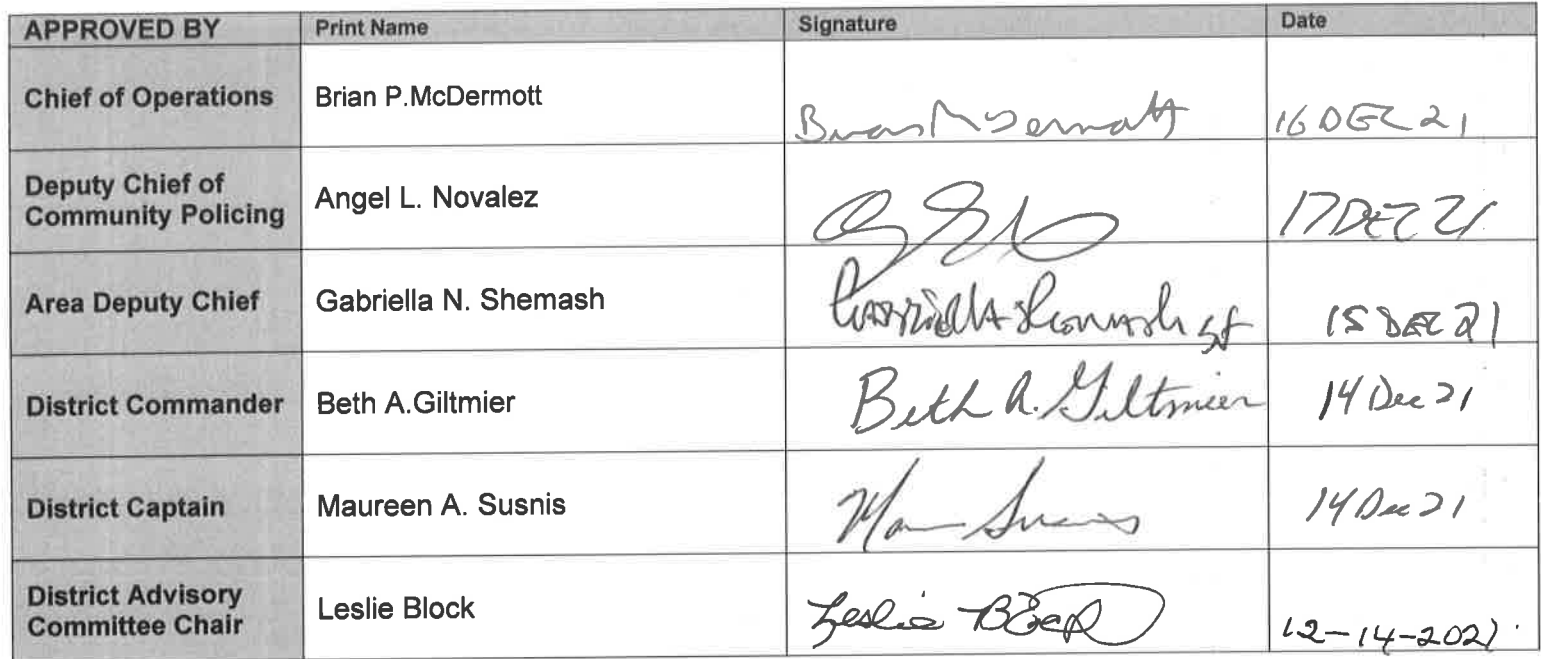 APPROVED BY Print Name Signature Date
Chief of Operations Brian P.McDermott Brian McDermott 16 DEC 21
Deputy Chief of
Community Policing Angel L. Novalez 17 DEC 21
Area Deputy Chief Gabriella N. Shemash Gabriella Shemash 15 DEC 21
District Commander Beth A.Giltmier Beth A. Giltmier 14 Dec 21
District Captain Maureen A. Susnis 14 Dec 21
District Advisory
Committee Chair Leslie Block Leslie Block 12-14-2021